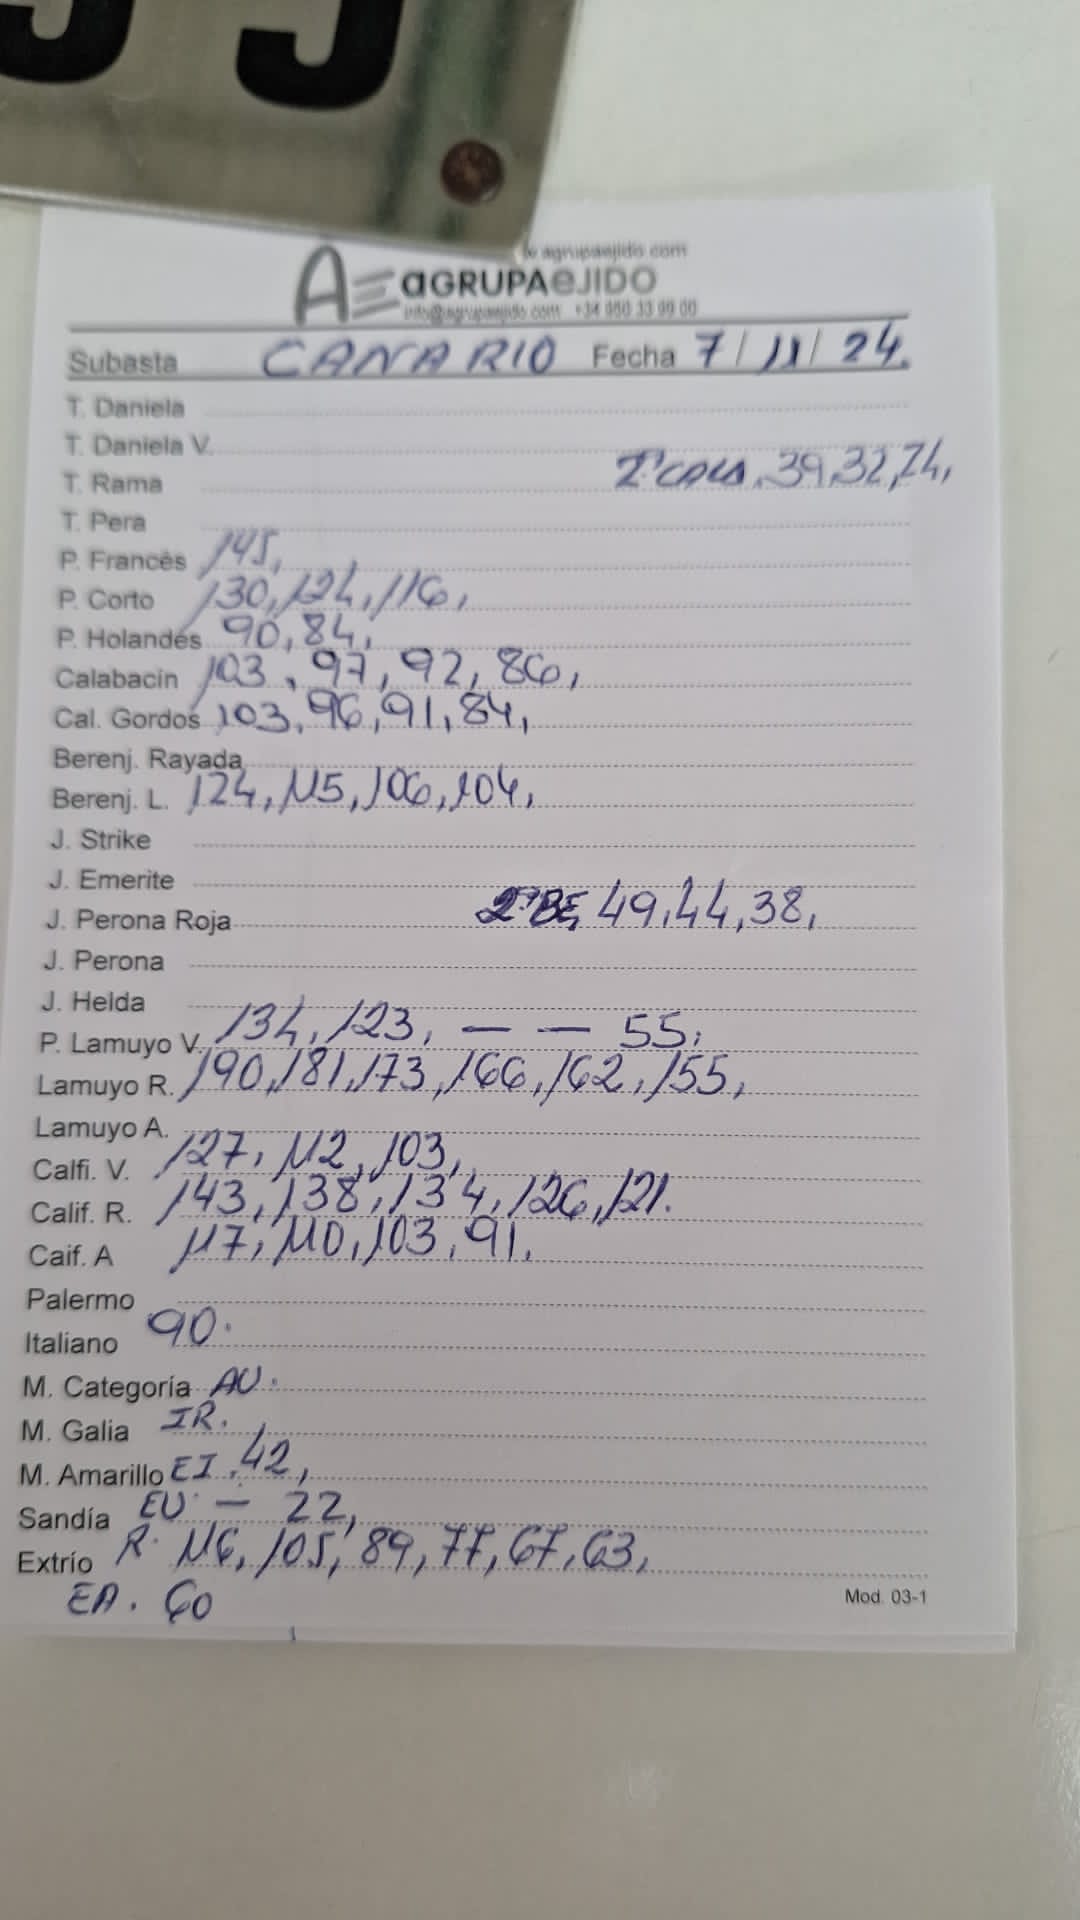 agrupaejido.com
AE aGRUPAeJIDO
info@agrupaejido.com +34 950 33 99 00
Subasta CANARIO Fecha 7/11/24.
T. Daniela
T. Daniela V.
2ª CALA. 39,32,24,
T. Rama
T. Pera
P. Francés 145,
P. Corto 130, 124, 116,
P. Holandés 90, 84,
Calabacin 103, 97, 92, 86,
Cal. Gordos 103, 96, 91, 84,
Berenj. Rayada
Berenj. L. 124, 115, 106, 104,
J. Strike
J. Emerite
J. Perona Roja 2ª BE, 49, 44, 38,
J. Perona
J. Helda
P. Lamuyo V. 134, 123, — — 55,
Lamuyo R. 190, 181, 173, 166, 162, 155,
Lamuyo A.
Calfi. V. 127, 112, 103,
Calif. R. 143, 138, 134, 126, 121.
Caif. A 117, 110, 103, 91,
Palermo
Italiano 90.
M. Categoría AU.
M. Galia IR.
M. Amarillo EI. 42,
Sandía EU. — 22,
Extrío R. 116, 105, 89, 77, 67, 63,
EA. 60
Mod. 03-1